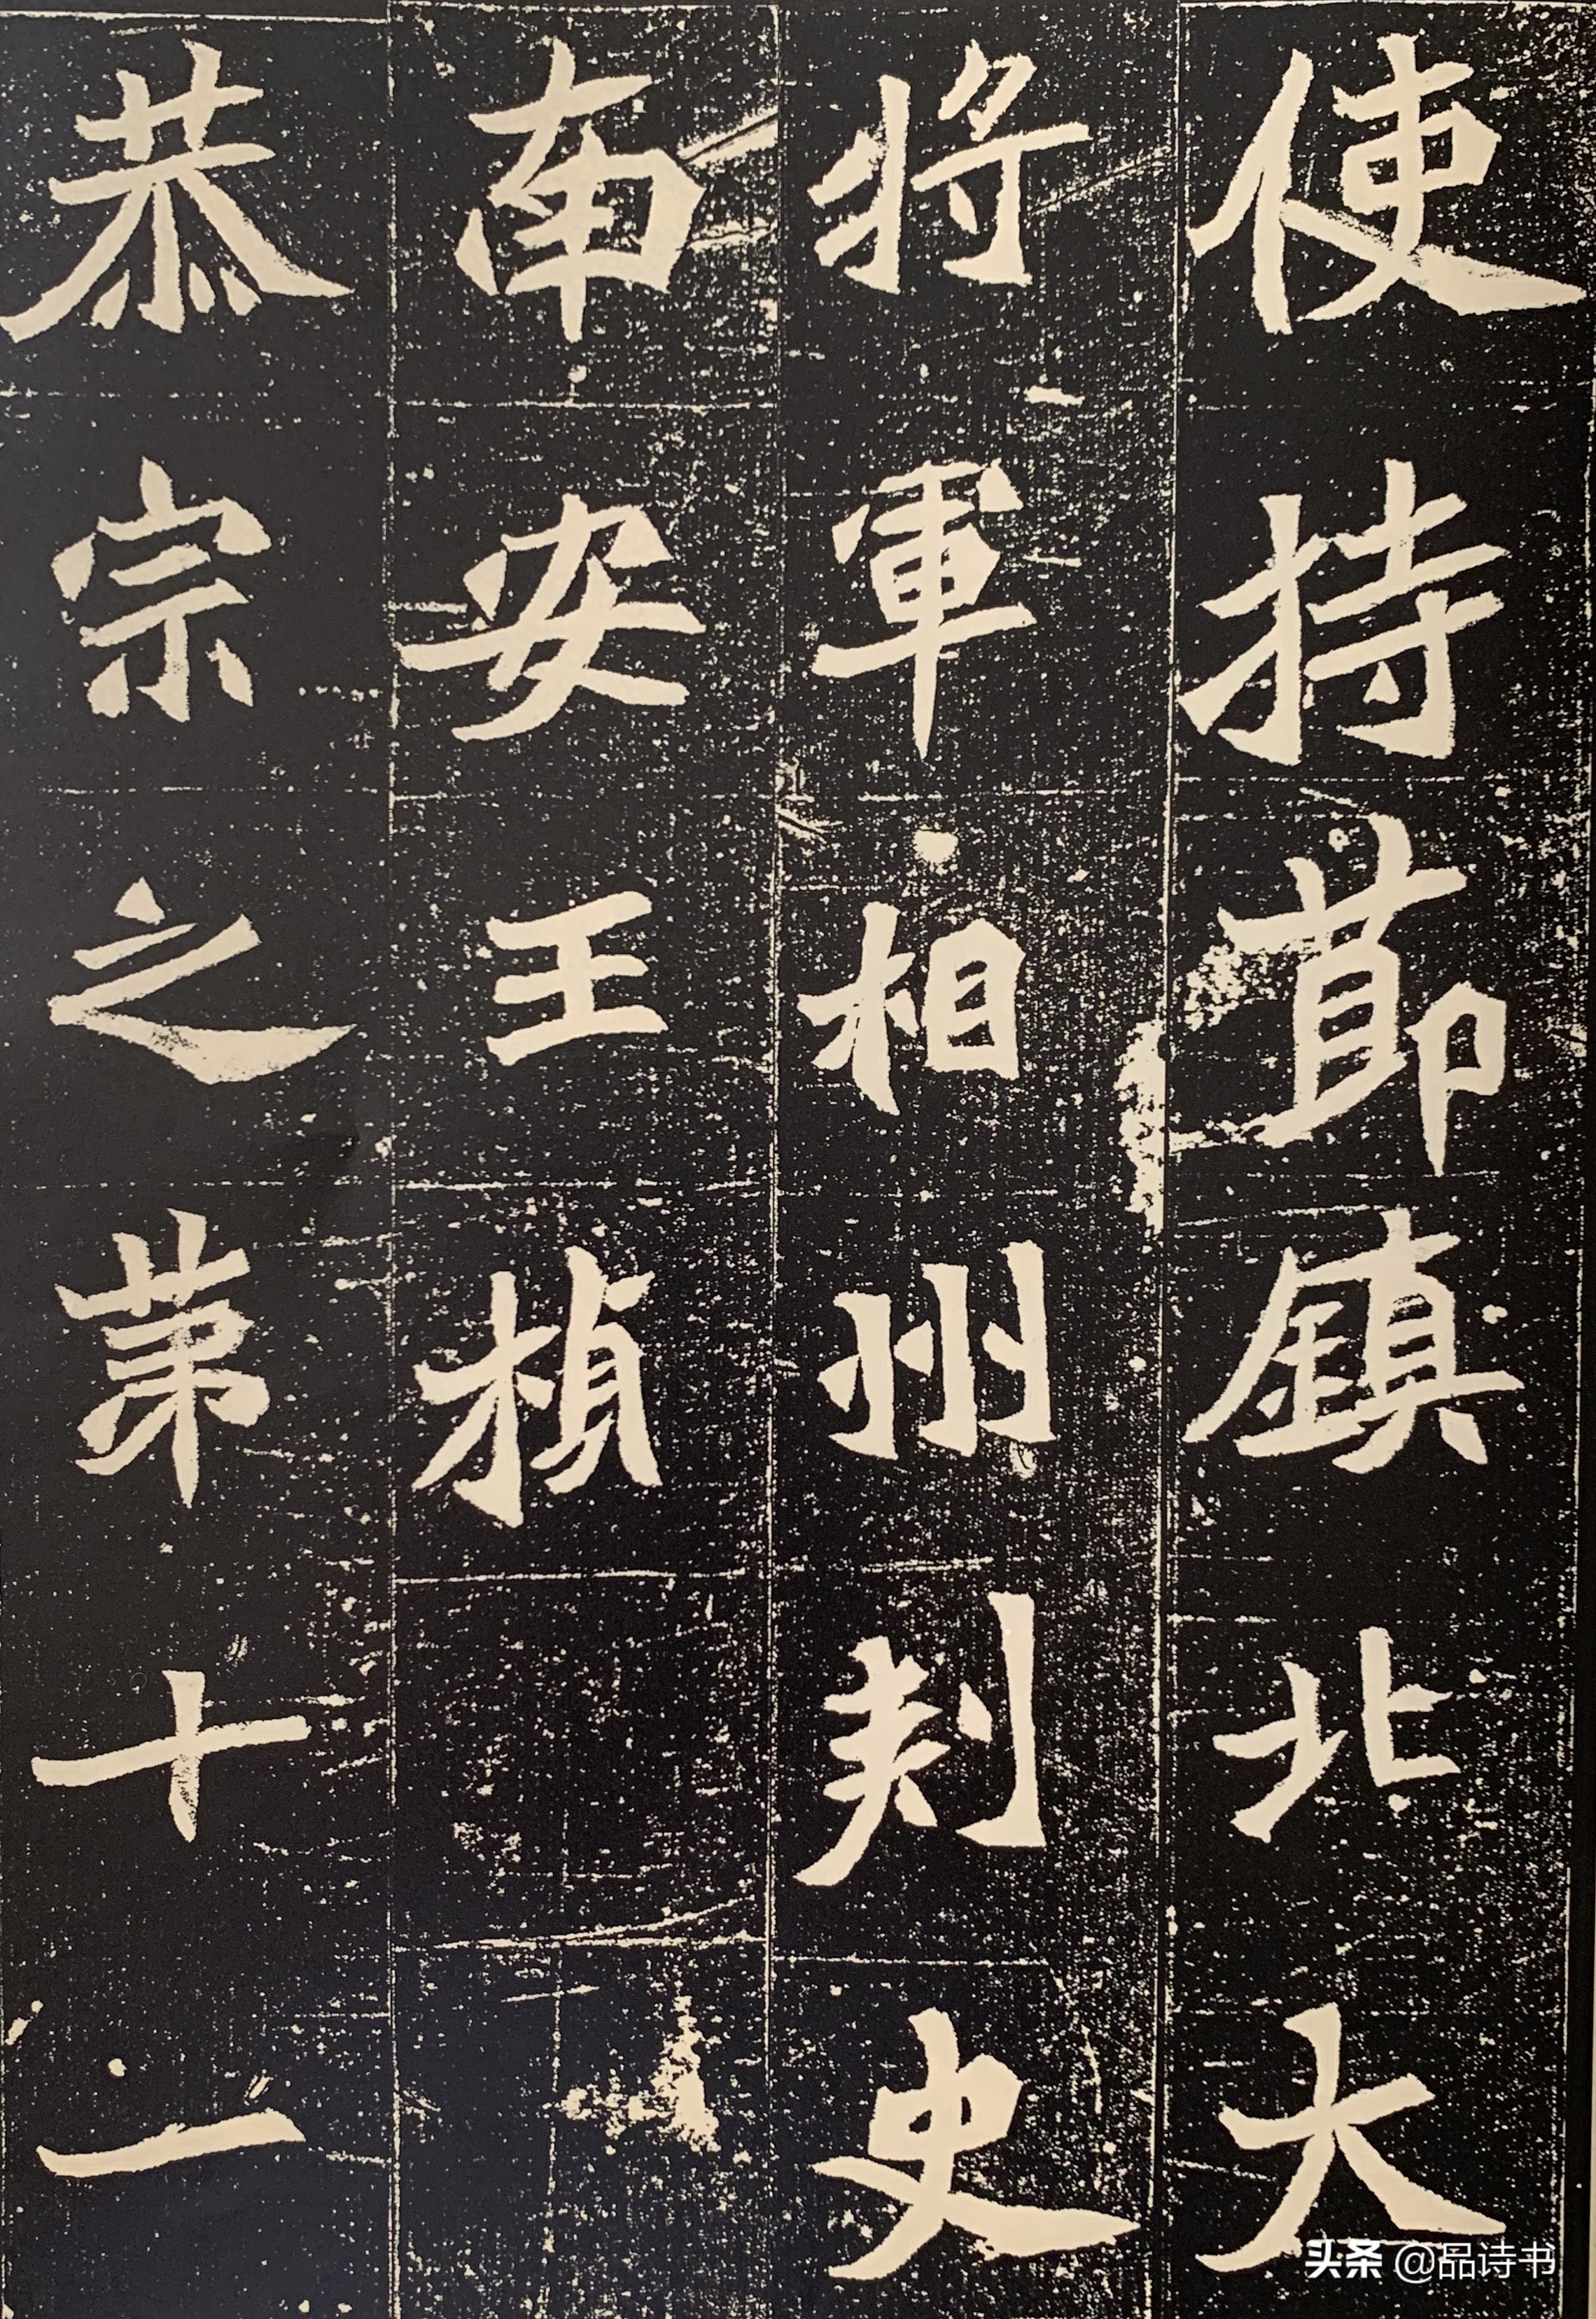 使持節鎮北大
將軍相州刾史
南安王楨
恭宗之第十一
头条 @品诗书